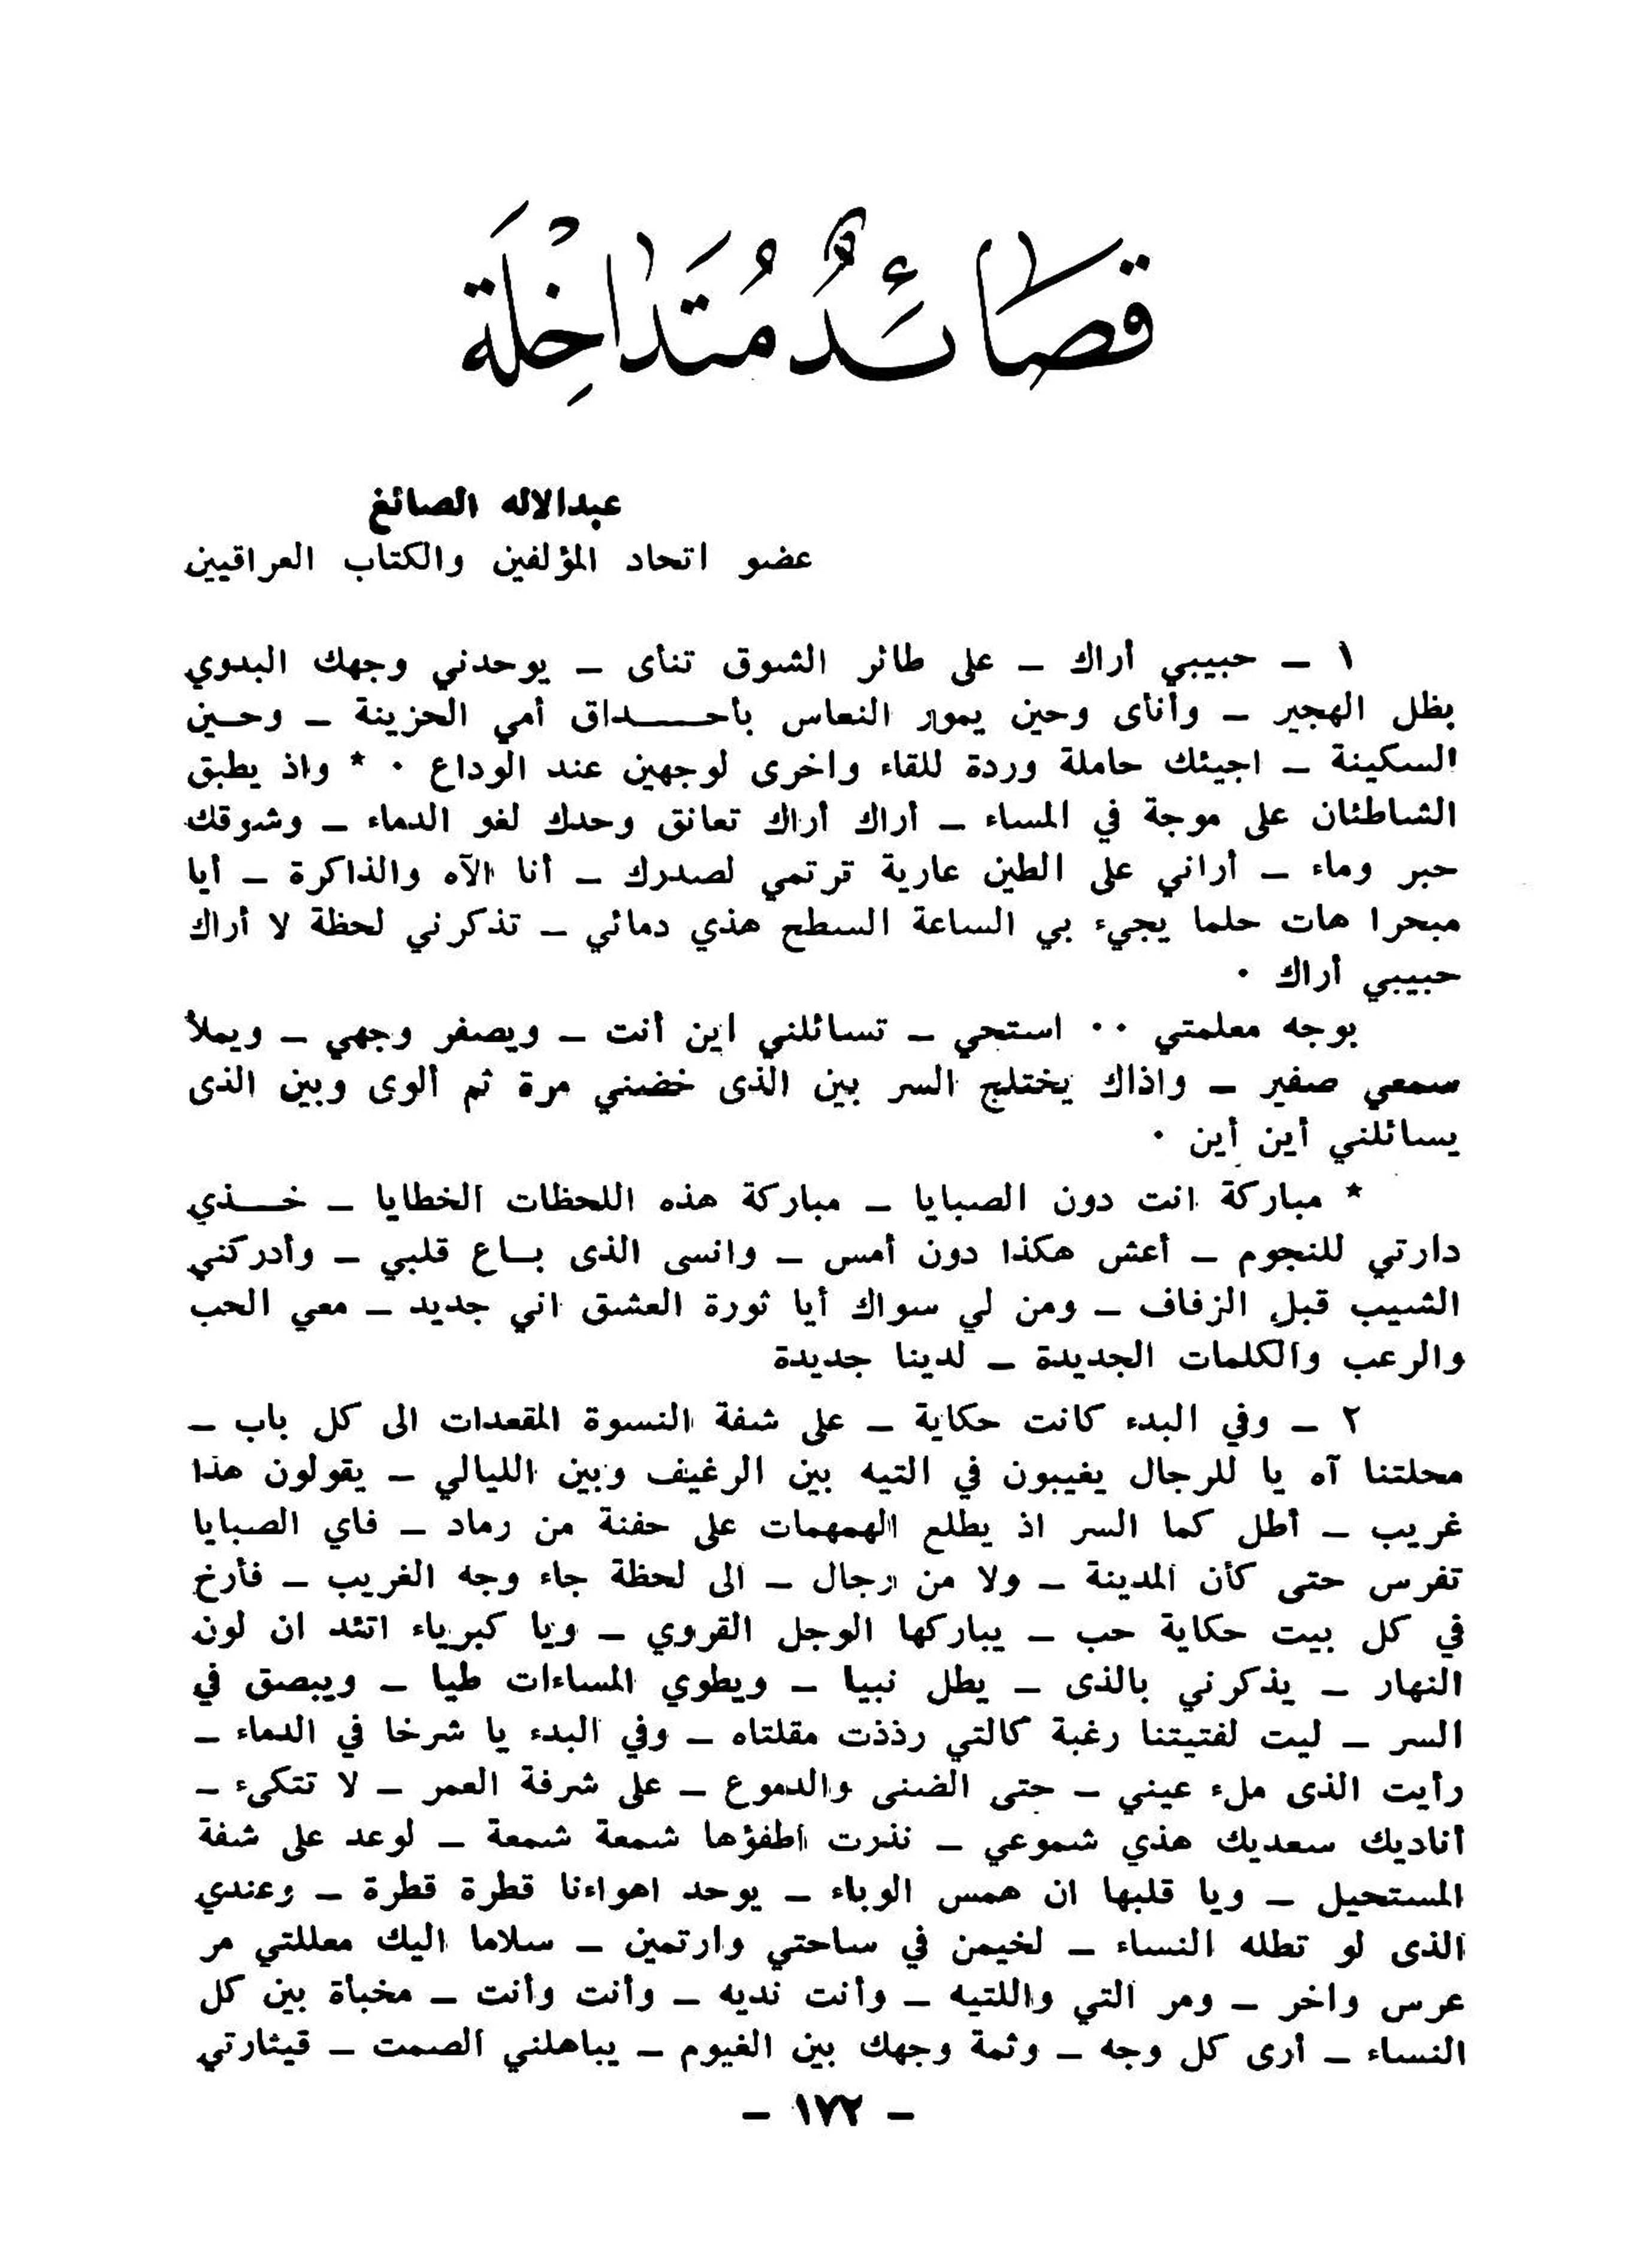 قَصَائِدٌ مُتَدَاخِلَة
عبدالاله الصائغ
عضو اتحاد المؤلفين والكتاب العراقيين
١ – حبيبي أراك – على طائر الشوق تنأى – يوحدني وجهك البدوي
بظل الهجير – وأنأى وحين يمور النعاس بأحـــداق أمي الحزينة – وحـين
السكينة – اجيئك حاملة وردة للقاء واخرى لوجهين عند الوداع ٠ * واذ يطبق
الشاطئان على موجة في المساء – أراك أراك تعانق وحدك لغو الدماء – وشوقك
حبر وماء – أراني على الطين عارية ترتمي لصدرك – أنا الآه والذاكرة – أيا
مبحرا هات حلما يجيء بي الساعة السطح هذي دمائي – تذكرني لحظة لا أراك
حبيبي أراك ٠
بوجه معلمتي ٠٠ استحي – تسائلني اين أنت – ويصفر وجهي – ويملأ
سمعي صفير – واذاك يختلج السر بين الذى خضني مرة ثم ألوى وبين الذى
يسائلني أين أين ٠
* مباركة انت دون الصبايا – مباركة هذه اللحظات الخطايا – خـــذي
دارتي للنجوم – أعش هكذا دون أمس – وانسى الذى بـاع قلبي – وأدركني
الشيب قبل الزفاف – ومن لي سواك أيا ثورة العشق اني جديد – معي الحب
والرعب والكلمات الجديدة – لدينا جديدة
٢ – وفي البدء كانت حكاية – على شفة النسوة المقعدات الى كل باب –
محلتنا آه يا للرجال يغيبون في التيه بين الرغيف وبين الليالي – يقولون هذا
غريب – أطل كما السر اذ يطلع الهمهمات على حفنة من رماد – فاي الصبايا
تفرس حتى كأن المدينة – ولا من رجال – الى لحظة جاء وجه الغريب – فأرخ
في كل بيت حكاية حب – يباركها الوجل القروي – ويا كبرياء اتئد ان لون
النهار – يذكرني بالذى – يطل نبيا – ويطوي المساءات طيا – ويبصق في
السر – ليت لفتيتنا رغبة كالتي رذذت مقلتاه – وفي البدء يا شرخا في الدماء –
رأيت الذى ملء عيني – حتى الضنى والدموع – على شرفة العمر – لا تتكىء –
أناديك سعديك هذي شموعي – نذرت اطفؤها شمعة شمعة – لوعد على شفة
المستحيل – ويا قلبها ان همس الوباء – يوحد اهواءنا قطرة قطرة – وعندي
الذى لو تطله النساء – لخيمن في ساحتي وارتمين – سلاما اليك معللتي مر
عرس واخر – ومر التي واللتيه – وأنت نديه – وأنت وأنت – مخبأة بين كل
النساء – أرى كل وجه – وثمة وجهك بين الغيوم – يباهلني الصمت – قيثارتي
– ١٧٢ –